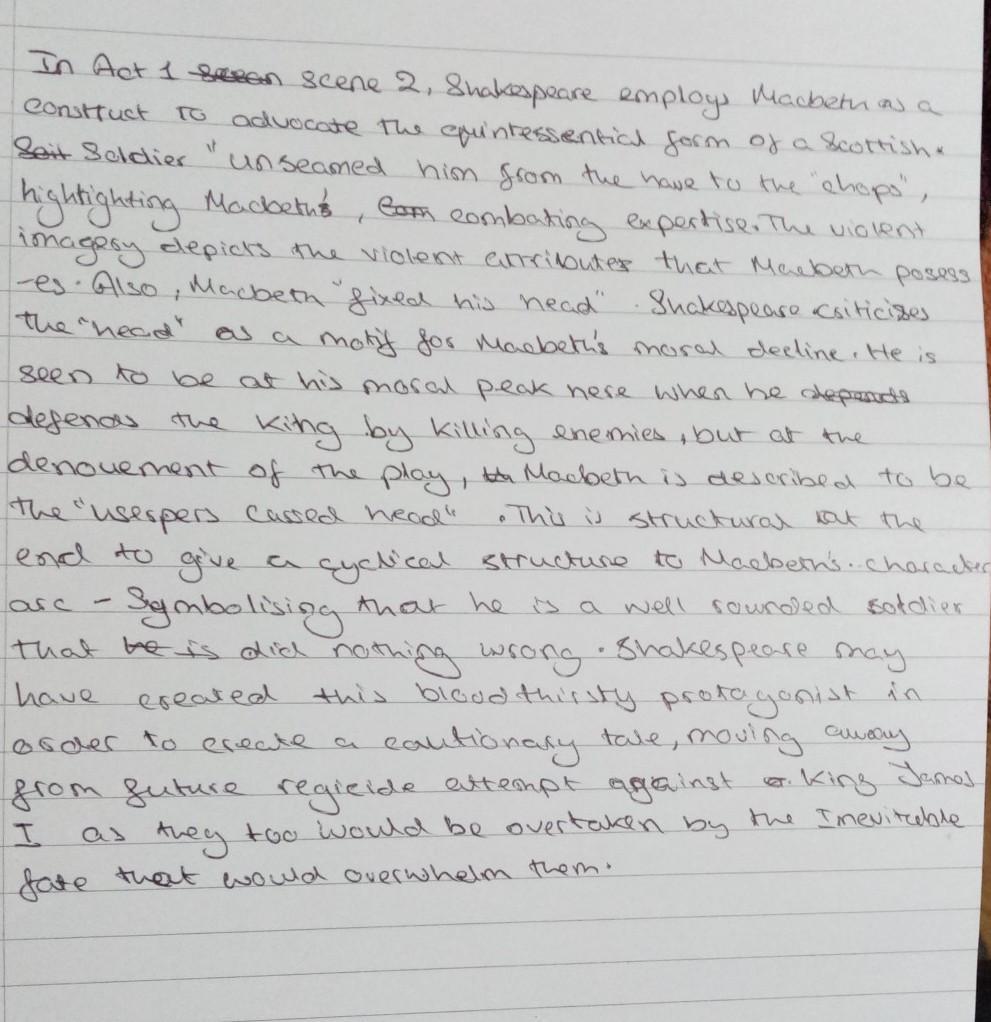 In Act 1 scene 2, Shakespeare employs Macbeth as a
construct to advocate the equintessential form of a Scottish
Soldier "unseamed him from the nave to the "chops",
highlighting Macbeth's, combating expertise. The violent
imagery depicts the violent attributes that Macbeth posess
-es. Also, Macbeth "fixed his head". Shakespeare criticizes
the "head" as a motif for Macbeth's moral decline. He is
seen to be at his moral peak here when he
defends the King by killing enemies, but at the
denouement of the play, Macbeth is described to be
the "userpers cursed head". This is structural at the
end to give a cyclical structure to Macbeth's character
arc - Symbolising that he is a well rounded soldier
that did nothing wrong. Shakespeare may
have created this bloodthirsty protagonist in
order to create a cautionary tale, moving away
from future regicide attempt against King James
I as they too would be overtaken by the Inevitable
fate that would overwhelm them.